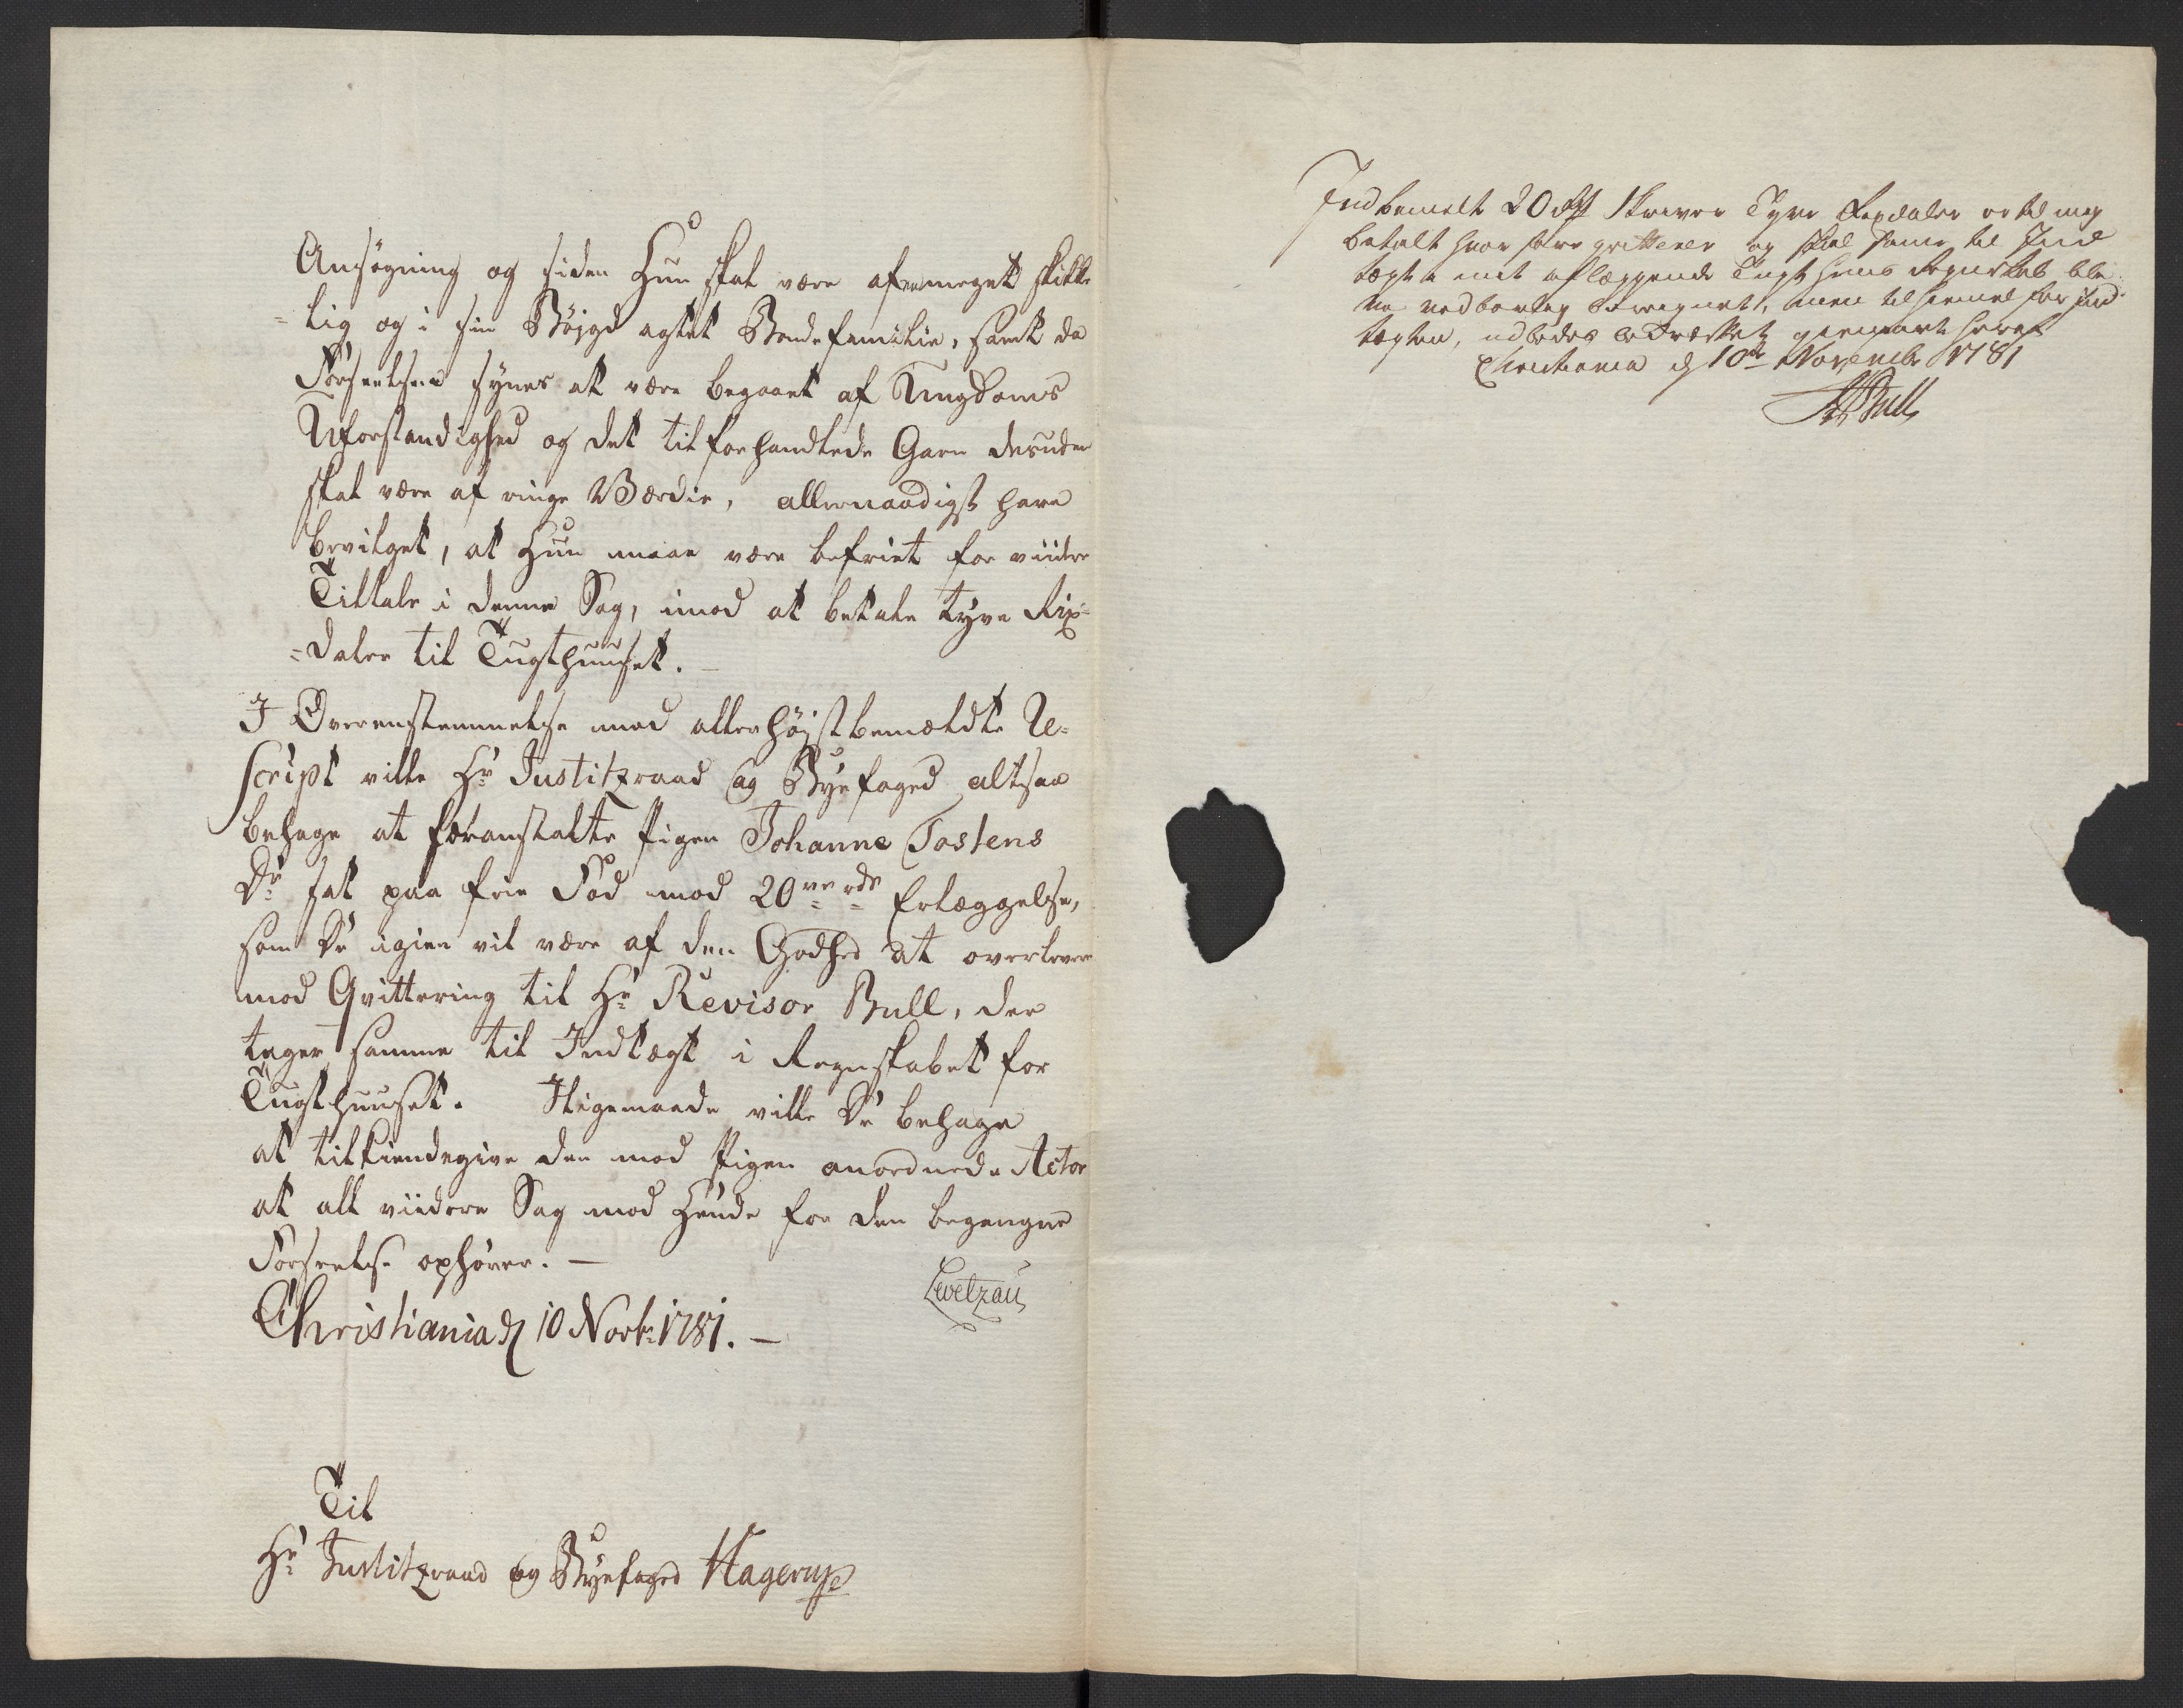 Ansøgning og siden Hun skal være af en meget skikke
-lig og i sin Bøjgd agtet Bondefamilie, samt da
Forseelsen synes at være begaaet af Ungdoms
Uforstandighed og det tilforhandlede Garn desuden
skal være af ringe Værdie, allernaadigst have
bevilget, at Hun maae være befriet for viidere
Tiltale i denne Sag, imod at betale tyve Rix-
-daler til Tugthuuset.
I Overensstemmelse med allerhøjstbemældte Re-
script ville Hr Justitzraad og Byefoged altsaa
behage at foranstalte Pigen Johanne Tostens
Dr sat paa frie Fod mod 20ve rdr Erlæggelse,
som De igien vil være af den Godhed at overlevere
mod Qvittering til Hr Revisor Bull, der
tager samme til Indtægt i Regnskabet for
Tugthuuset. Ligemaade ville De behage
at tilkiendegive den mod Pigen anordnede Actor
at all viidere Sag mod Hende for den begangne
Forseelse ophører. —
Levetzau
Christiania d 10 Novbr 1781. —
Til
Hr Justitzraad og Byefoged Hagerup
Indbemelte 20 rd Skriver Tyve Rixdaler er til mig
betalt hvor fore qvitteres og skal samme til Ind
tægt i mit aflæggende Tugthuus Regnskab bli
ve vedbørlig beregnet, men til hiemel for Ind-
tægten, udbedes hereft
Christiania d 10de Novembr 1781
Bull